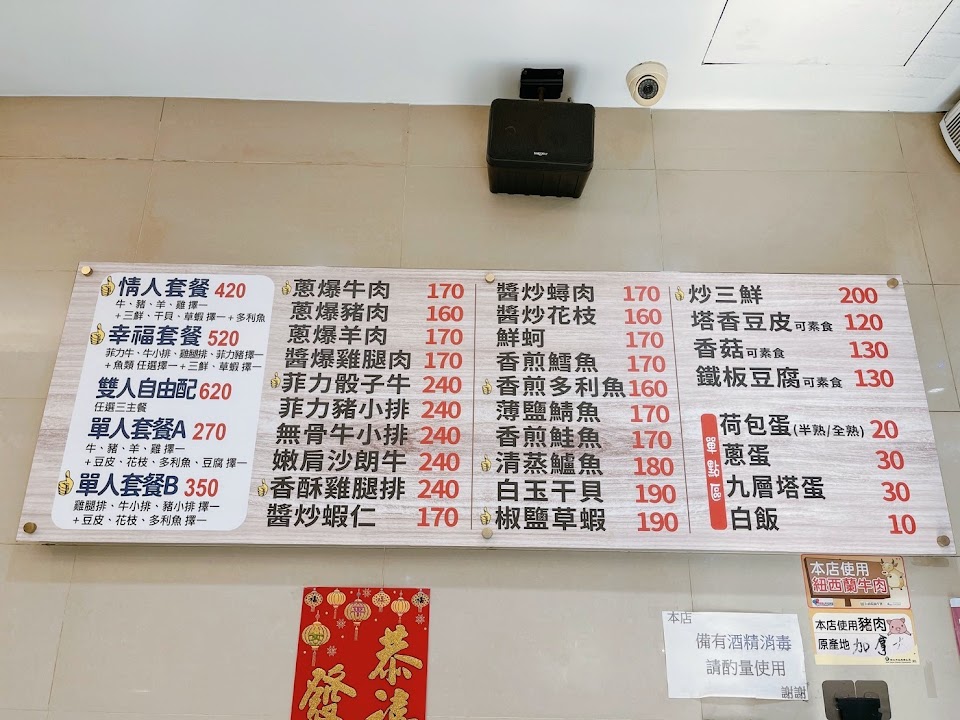 情人套餐 420
牛、豬、羊、雞 擇一
+三鮮、干貝、草蝦 擇一+多利魚
幸福套餐 520
菲力牛、牛小排、雞腿排、菲力豬 擇一
+魚類 任選擇一+三鮮、草蝦 擇一
雙人自由配 620
任選三主餐
單人套餐A 270
牛、豬、羊、雞 擇一
+豆皮、花枝、多利魚、豆腐 擇一
單人套餐B 350
雞腿排、牛小排、豬小排 擇一
+豆皮、花枝、多利魚 擇一
蔥爆牛肉 170
蔥爆豬肉 160
蔥爆羊肉 170
醬爆雞腿肉 170
菲力骰子牛 240
菲力豬小排 240
無骨牛小排 240
嫩肩沙朗牛 240
香酥雞腿排 240
醬炒蝦仁 170
醬炒蟳肉 170
醬炒花枝 160
鮮蚵 170
香煎鱈魚 170
香煎多利魚 160
薄鹽鯖魚 170
香煎鮭魚 170
清蒸鱸魚 180
白玉干貝 190
椒鹽草蝦 190
炒三鮮 200
塔香豆皮 可素食 120
香菇 可素食 130
鐵板豆腐 可素食 130
單點區
荷包蛋(半熟/全熟) 20
蔥蛋 30
九層塔蛋 30
白飯 10
恭
發
本店
備有酒精消毒
請酌量使用
謝謝
本店使用
紐西蘭牛肉
本店使用豬肉
原產地 加拿大